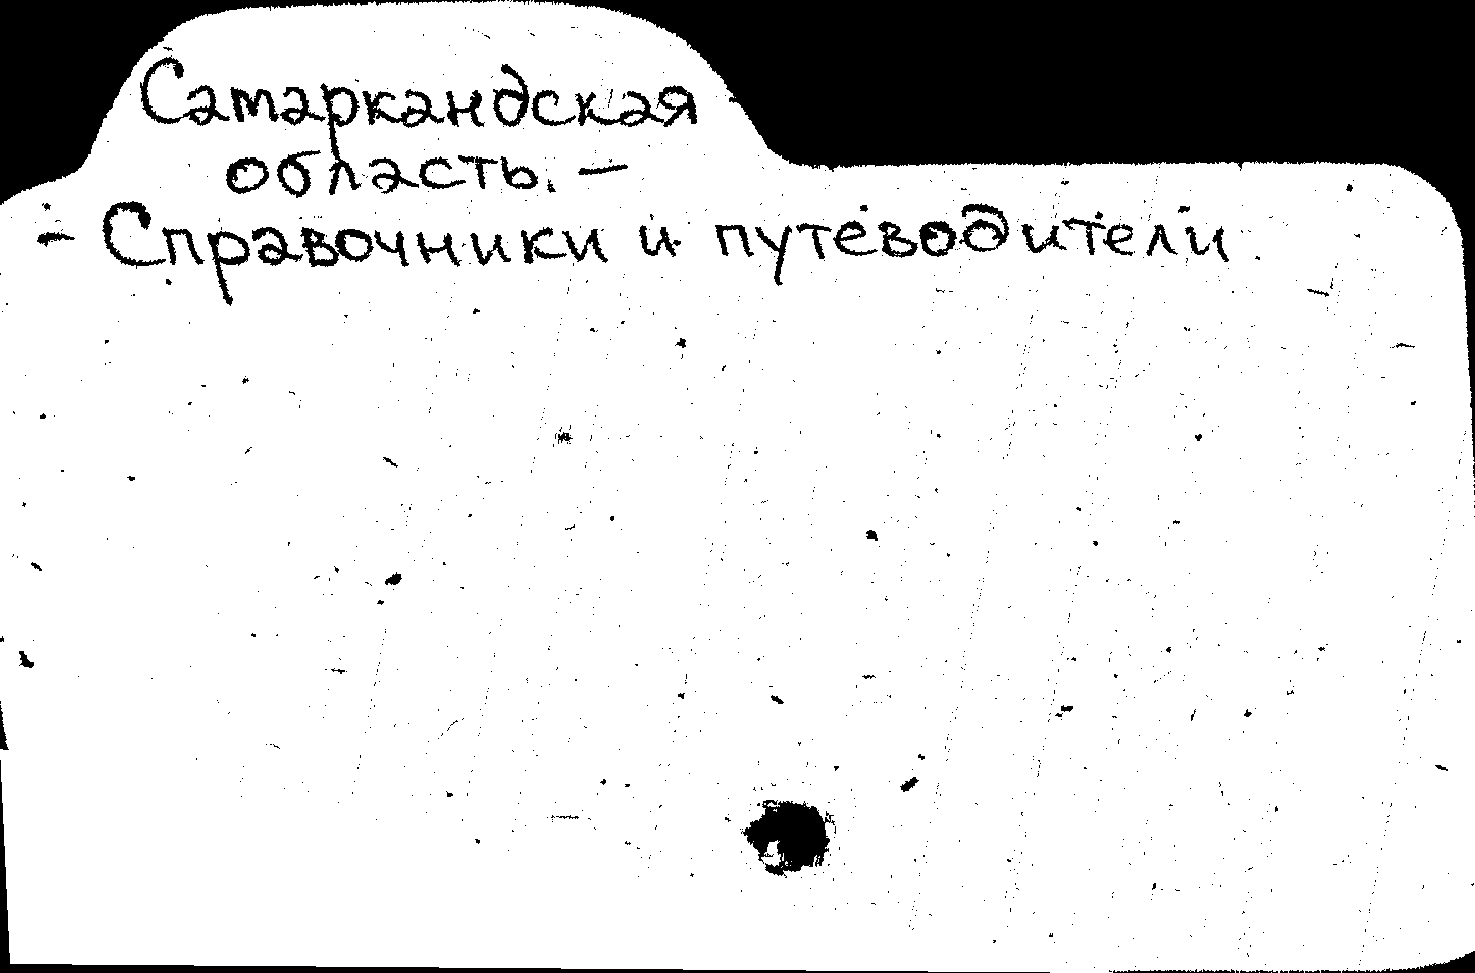 Самаркандская
область. —
- Справочники и путеводители